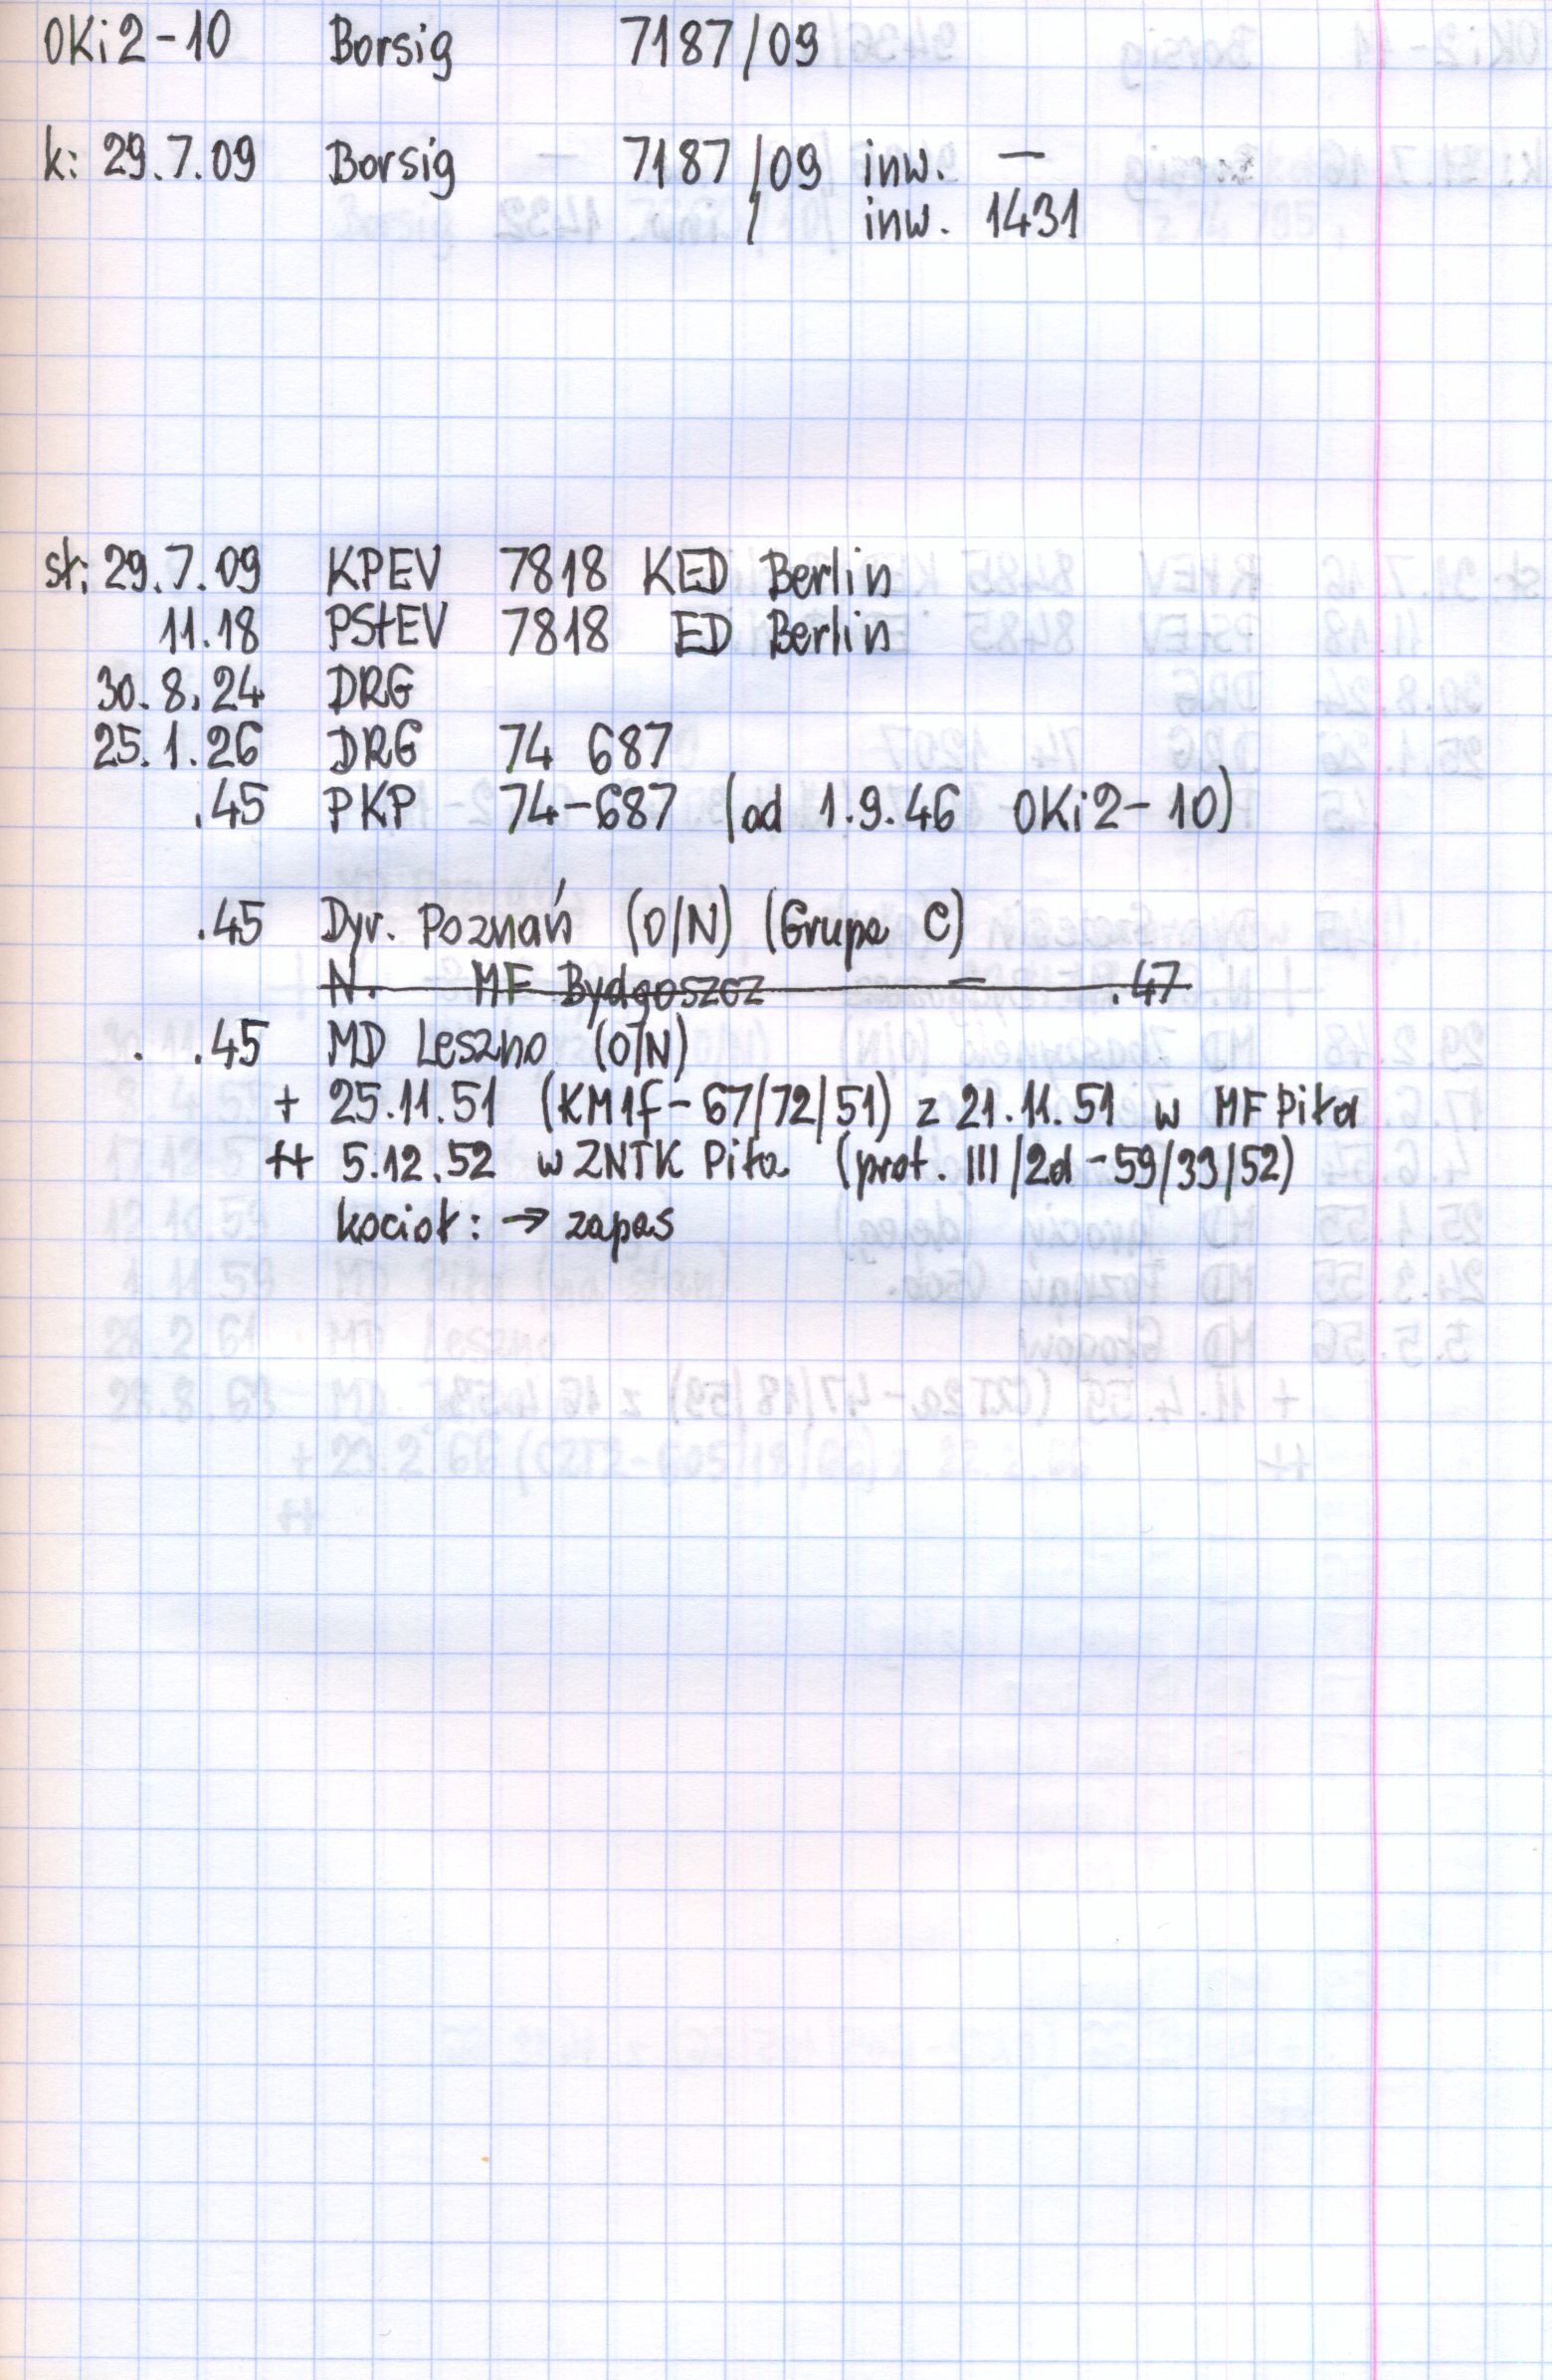 OKi2-10 Borsig 7187/09
k: 29.7.09 Borsig 7187/09 inw. —
/ inw. 1431
st: 29.7.09 KPEV 7818 KED Berlin
11.18 PStEV 7818 ED Berlin
30.8.24 DRG
25.1.26 DRG 74 687
.45 PKP 74-687 (od 1.9.46 OKi2-10)
.45 Dyr. Poznań (O/N) (Grupa C)
N. MF Bydgoszcz — .47
. .45 MD Leszno (O/N)
+ 25.11.51 (KM1f-67/72/51) z 21.11.51 w MF Piła
++ 5.12.52 w ZNTK Piła (prot. III/2d-59/39/52)
kocioł: → zapas